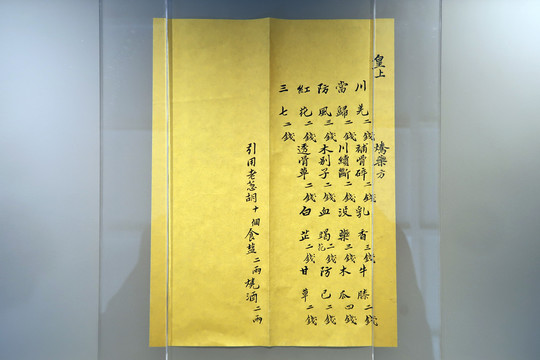 皇上 燙藥方
川羌二錢 補骨碎二錢 乳香三錢 牛膝二錢
當歸二錢 川續斷二錢 沒藥三錢 木瓜四錢
防風三錢 木別子二錢 血竭花二錢 防己二錢
紅花二錢 透骨草二錢 白芷二錢 甘草二錢
三七二錢
引用老蔥胡十個 食鹽二兩 燒酒二兩